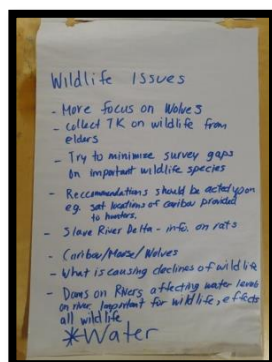 Wildlife Issues
- More focus on Wolves
- collect TK on wildlife from
elders
- Try to minimize survey gaps
on important wildlife species
- Reccommendations should be acted upon
eg. sat locations of caribou provided
to hunters.
- Slave River Delta - info. on rats
- Caribou/Moose/Wolves
- What is causing declines of wildlife
- Dams on Rivers affecting water levels
on river important for wildlife, effects
all wildlife
*Water